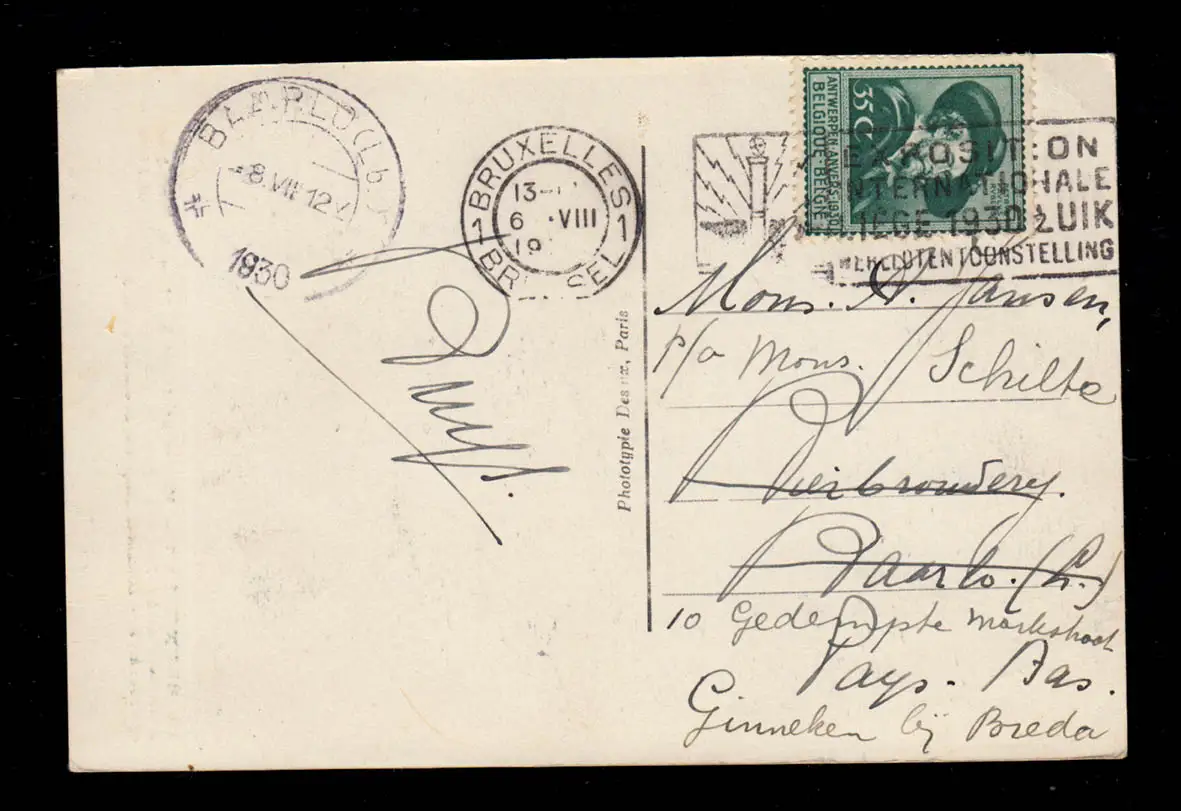 BAARLO (Lb.)
8.VII.12
1930
1 BRUXELLES 1
13-
6 VIII
19
BRUSSEL
35 C
ANTWERPEN-ANVERS 1930
BELGIQUE-BELGIË
EXPOSITION
INTERNATIONALE
LIEGE 1930 LUIK
WERELDTENTOONSTELLING
Phototypie Desaix, Paris
Mons. A. Jansen,
p/a Mons. Schilte
Bierbrouwery.
Baarlo. (L.)
10 Gedempte Markstraat
Pays-Bas.
Ginneken bij Breda